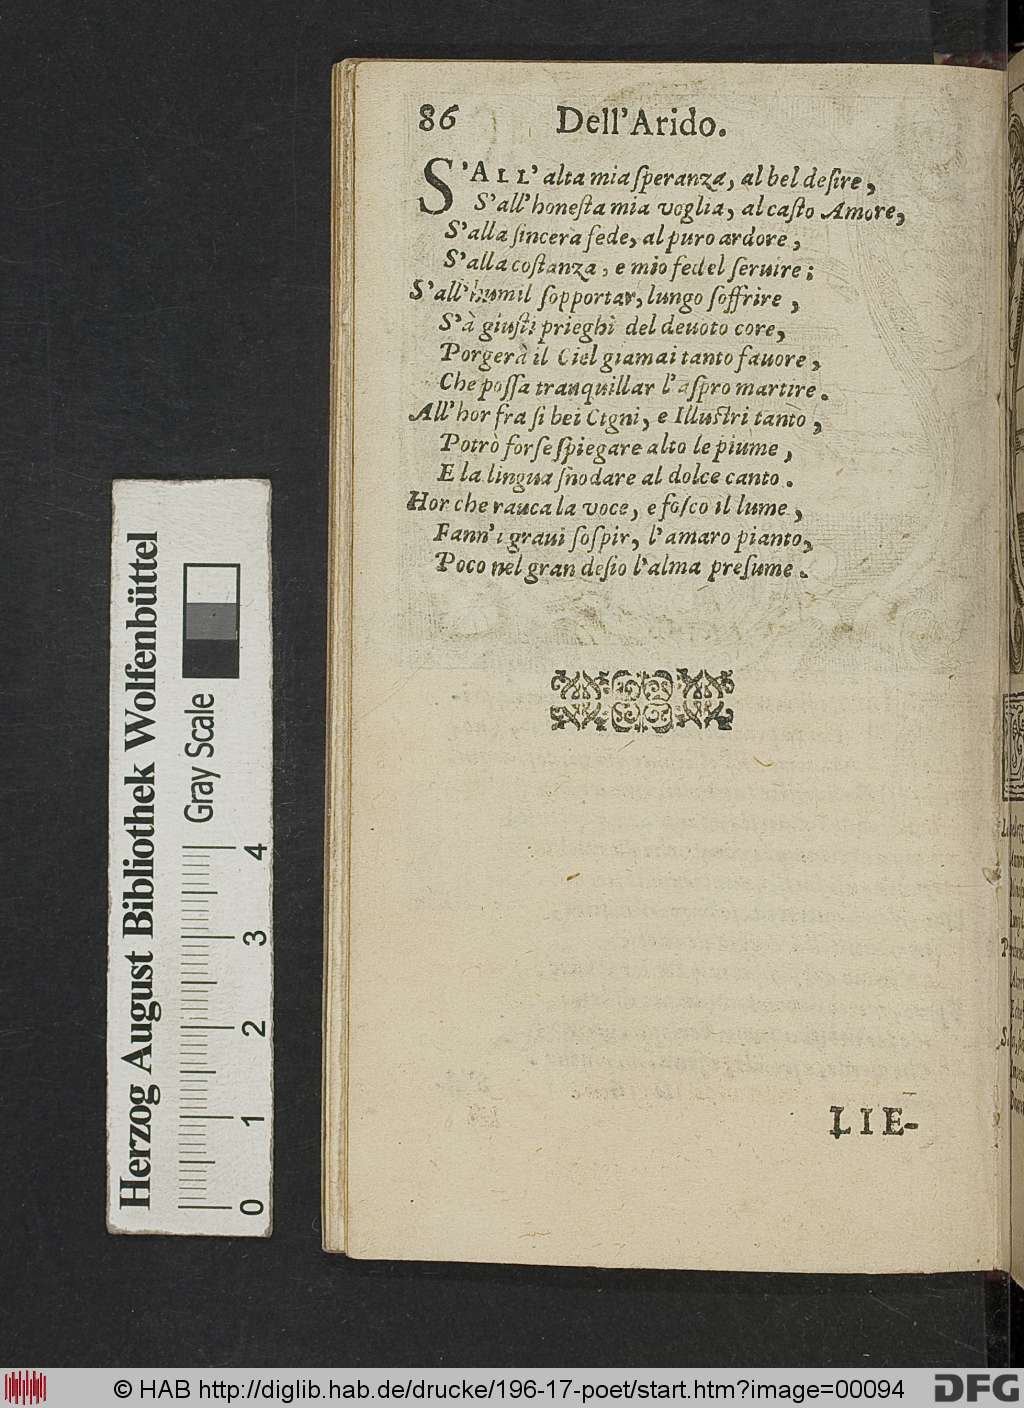 86 Dell'Arido.
S'ALL' alta mia ſperanza, al bel deſire,
S'all' honeſta mia voglia, al caſto Amore,
S'alla ſincera fede, al puro ardore,
S'alla coſtanza, e mio fedel ſeruire;
S'all' humil ſopportar, lungo ſoffrire,
S'à giuſti prieghi del deuoto core,
Porgerà il Ciel giamai tanto fauore,
Che poſſa tranquillar l'aſpro martire.
All'hor fra ſi bei Cigni, e Illuſtri tanto,
Potrò forſe ſpiegare alto le piume,
E la lingua ſnodare al dolce canto.
Hor che rauca la voce, e foſco il lume,
Fann' i graui ſoſpir, l'amaro pianto,
Poco nel gran deſio l'alma preſume.
LIE-
Herzog August Bibliothek Wolfenbüttel
Gray Scale
0 1 2 3 4
© HAB http://diglib.hab.de/drucke/196-17-poet/start.htm?image=00094
DFG